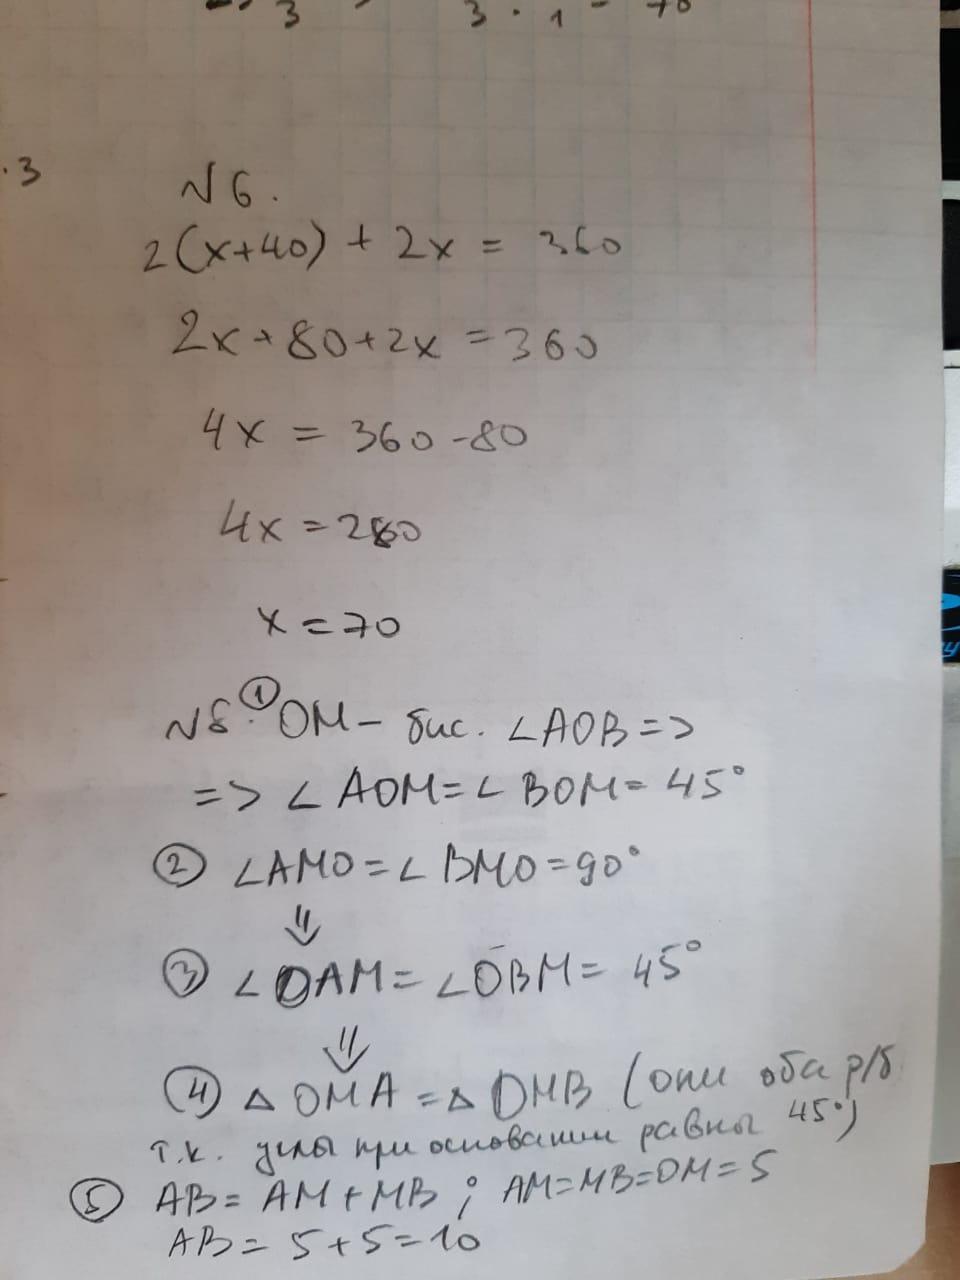 3 3 · 1 = 70
.3
N 6.
2(x+40) + 2x = 360
2x+80+2x=360
4x = 360-80
4x=280
x=70
N8. ① OM - бис. ∠AOB =>
=> ∠ AOM=∠ BOM= 45°
② ∠AMO=∠ BMO=90°
⇓
③ ∠OAM= ∠OBM= 45°
⇓
④ △ OMA =△ OMB (они оба р/б
т.к. углы при основании равны 45°)
⑤ AB= AM+MB ; AM=MB=OM=5
AB= 5+5=10